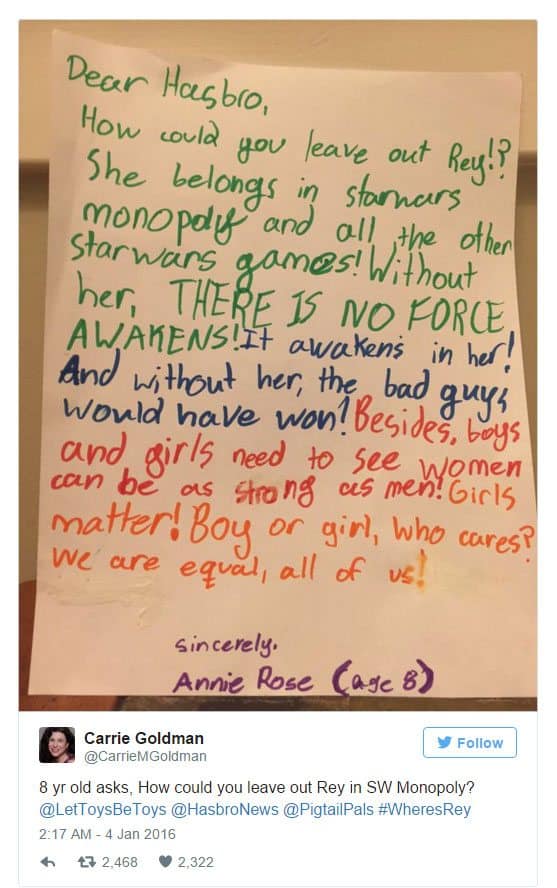 Dear Hasbro,
How could you leave out Rey!?
She belongs in starwars
monopoly and all the other
starwars games! Without
her, THERE IS NO FORCE
AWAKENS! It awakens in her!
And without her, the bad guys
would have won! Besides, boys
and girls need to see women
can be as strong as men! Girls
matter! Boy or girl, who cares?
We are equal, all of us!
sincerely.
Annie Rose (age 8)
Carrie Goldman
@CarrieMGoldman
Follow
8 yr old asks, How could you leave out Rey in SW Monopoly?
@LetToysBeToys @HasbroNews @PigtailPals #WheresRey
2:17 AM - 4 Jan 2016
2,468 2,322